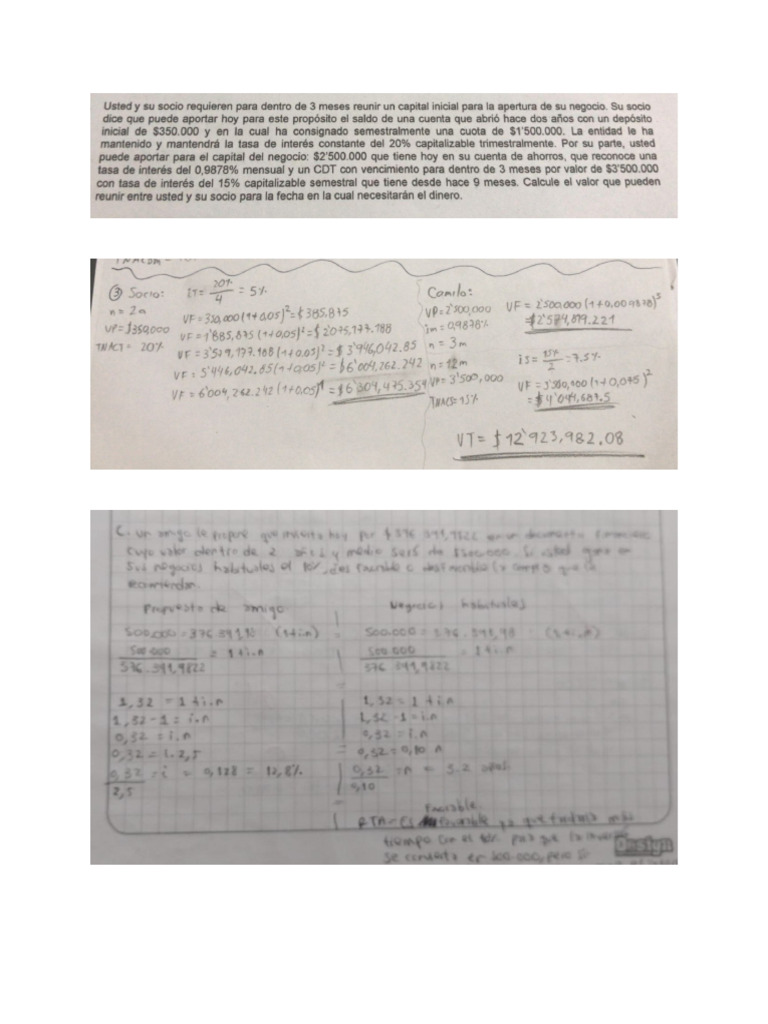 Usted y su socio requieren para dentro de 3 meses reunir un capital inicial para la apertura de su negocio. Su socio
dice que puede aportar hoy para este propósito el saldo de una cuenta que abrió hace dos años con un depósito
inicial de $350.000 y en la cual ha consignado semestralmente una cuota de $1'500.000. La entidad le ha
mantenido y mantendrá la tasa de interés constante del 20% capitalizable trimestralmente. Por su parte, usted
puede aportar para el capital del negocio: $2'500.000 que tiene hoy en su cuenta de ahorros, que reconoce una
tasa de interés del 0,9878% mensual y un CDT con vencimiento para dentro de 3 meses por valor de $3'500.000
con tasa de interés del 15% capitalizable semestral que tiene desde hace 9 meses. Calcule el valor que pueden
reunir entre usted y su socio para la fecha en la cual necesitarán el dinero.
③ Socio:
iT = 20% / 4 = 5%
n = 2a
VP = $350,000
TNACT = 20%
VF = 350,000 (1+0,05)² = $385,875
VF = 1'885,875 (1+0,05)² = $2'079,177.188
VF = 3'579,177.188 (1+0,05)² = $3'946,042.85
VF = 5'446,042,85 (1+0,05)² = $6'004,262.242
VF = 6'004,262.242 (1+0,05)¹ = $6'304,475.354
Camilo:
VP = 2'500,000
im = 0,9878%
n = 3m
VF = 2'500,000 (1+0,009878)³
= $2'574,819.221
n = 12m
VP = 3'500,000
TNACS = 15%
iS = 15% / 2 = 7.5%
VF = 3'500,000 (1+0,075)²
= $4'044,687.5
VT = $12'923,982.08
C. un amigo le propone que invierta hoy por $376.391,9822 en un documento financiero
cuyo valor dentro de 2 años y medio será de $500.000. Si usted gana en
sus negocios habituales el
recomiendan.
Propuesta de amigo
500.000 = 376.391,98 (1+i.n)
500.000 / 376.391,9822 = 1+i.n
1,32 = 1+i.n
1,32-1 = i.n
0,32 = i.n
0,32 = i.2,5
0,32 / 2,5 = i = 0,128 = 12,8%
Negocios habituales
500.000 = 376.391,98 (1+i.n)
500.000 / 376.391,9822 = 1+i.n
1,32 = 1+i.n
1,32-1 = i.n
0,32 = i.n
0,32 = 0,10 n
0,32 / 0,10 = n = 3.2 años.
favorable
RTA = Es favorable ya que tardaría más
tiempo con el 10% para que la
se convierta en 500.000, pero
Design